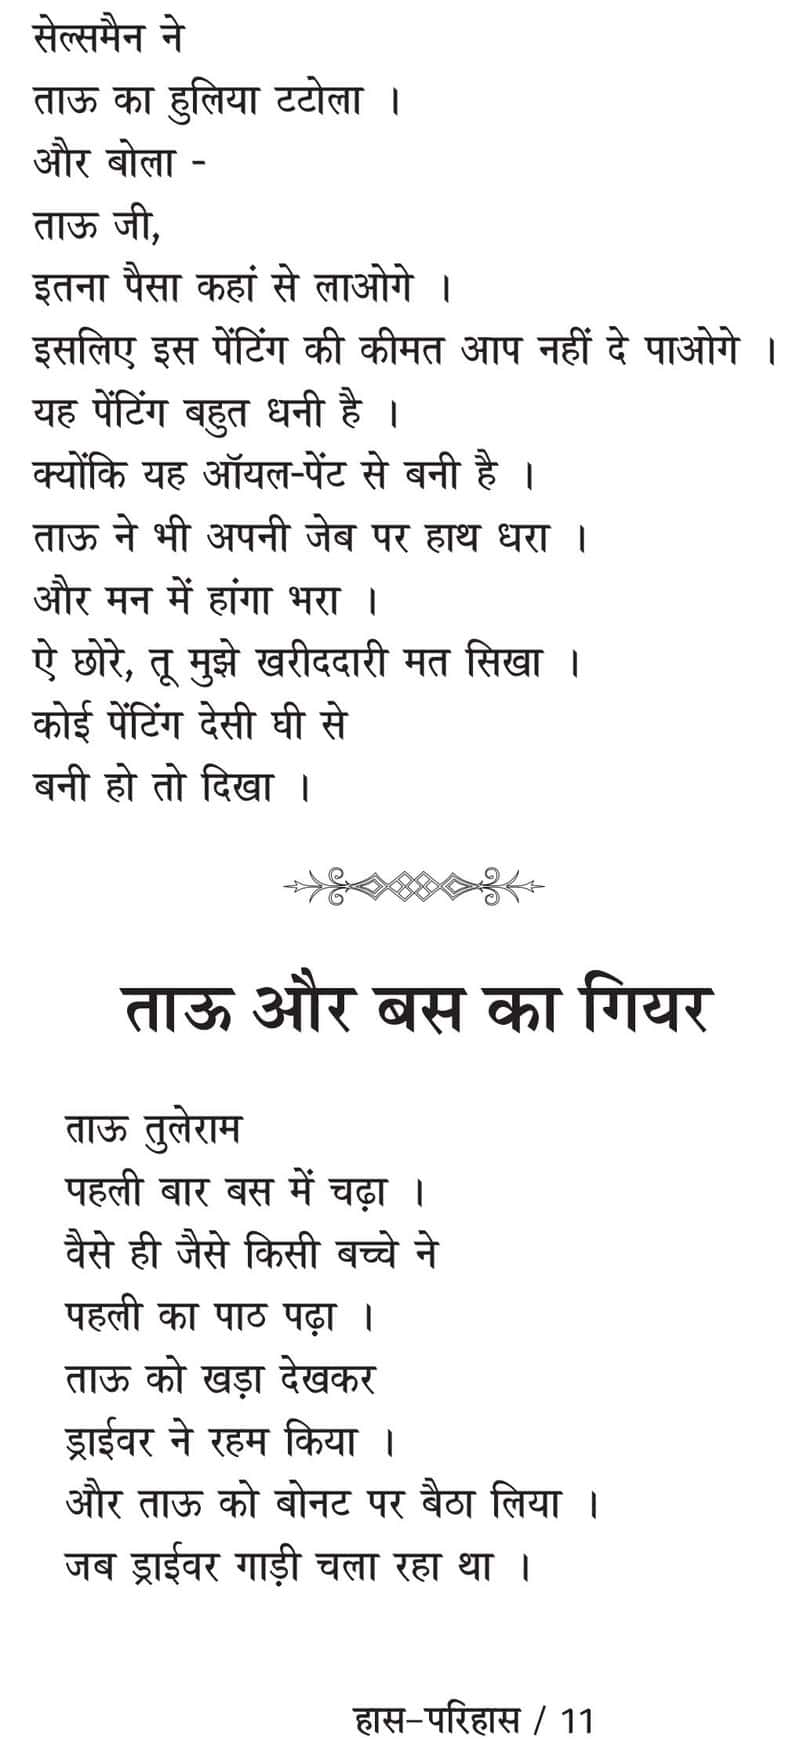 सेल्समैन ने
ताऊ का हुलिया टटोला ।
और बोला -
ताऊ जी,
इतना पैसा कहां से लाओगे ।
इसलिए इस पेंटिंग की कीमत आप नहीं दे पाओगे ।
यह पेंटिंग बहुत धनी है ।
क्योंकि यह ऑयल-पेंट से बनी है ।
ताऊ ने भी अपनी जेब पर हाथ धरा ।
और मन में हांगा भरा ।
ऐ छोरे, तू मुझे खरीददारी मत सिखा ।
कोई पेंटिंग देसी घी से
बनी हो तो दिखा ।
ताऊ और बस का गियर
ताऊ तुलेराम
पहली बार बस में चढ़ा ।
वैसे ही जैसे किसी बच्चे ने
पहली का पाठ पढ़ा ।
ताऊ को खड़ा देखकर
ड्राईवर ने रहम किया ।
और ताऊ को बोनट पर बैठा लिया ।
जब ड्राईवर गाड़ी चला रहा था ।
हास-परिहास / 11